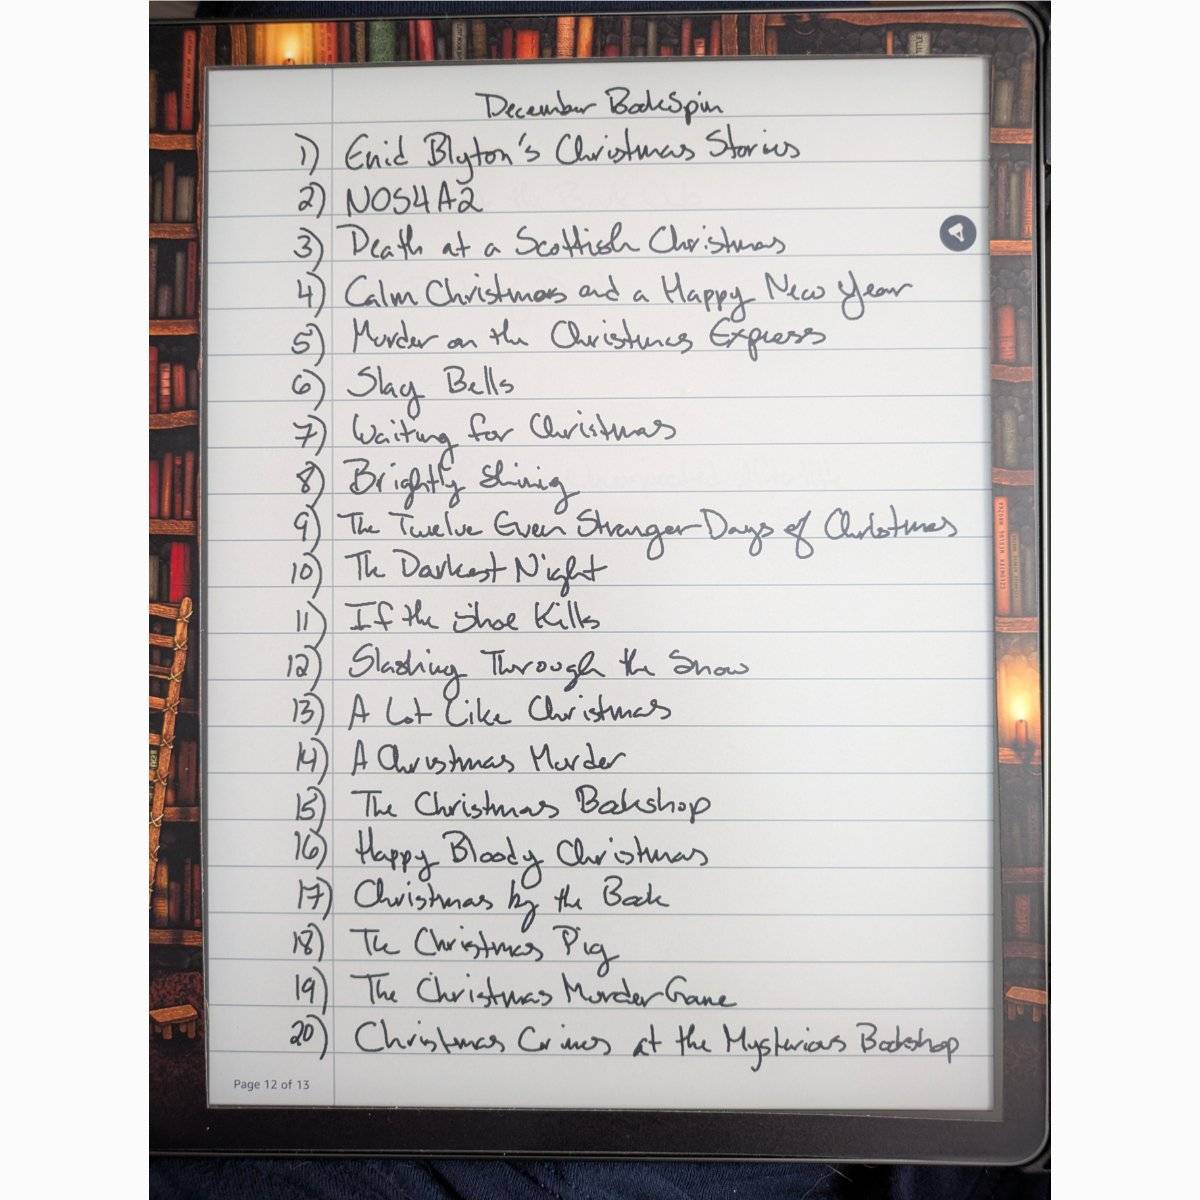 December BookSpin
1) Enid Blyton's Christmas Stories
2) NOS4A2
3) Death at a Scottish Christmas
4) Calm Christmas and a Happy New Year
5) Murder on the Christmas Express
6) Slay Bells
7) Waiting for Christmas
8) Brightly Shining
9) The Twelve Even Stranger Days of Christmas
10) The Darkest Night
11) If the Shoe Kills
12) Slashing Through the Snow
13) A Lot Like Christmas
14) A Christmas Murder
15) The Christmas Bookshop
16) Happy Bloody Christmas
17) Christmas by the Book
18) The Christmas Pig
19) The Christmas Murder Game
20) Christmas Crimes at the Mysterious Bookshop
Page 12 of 13